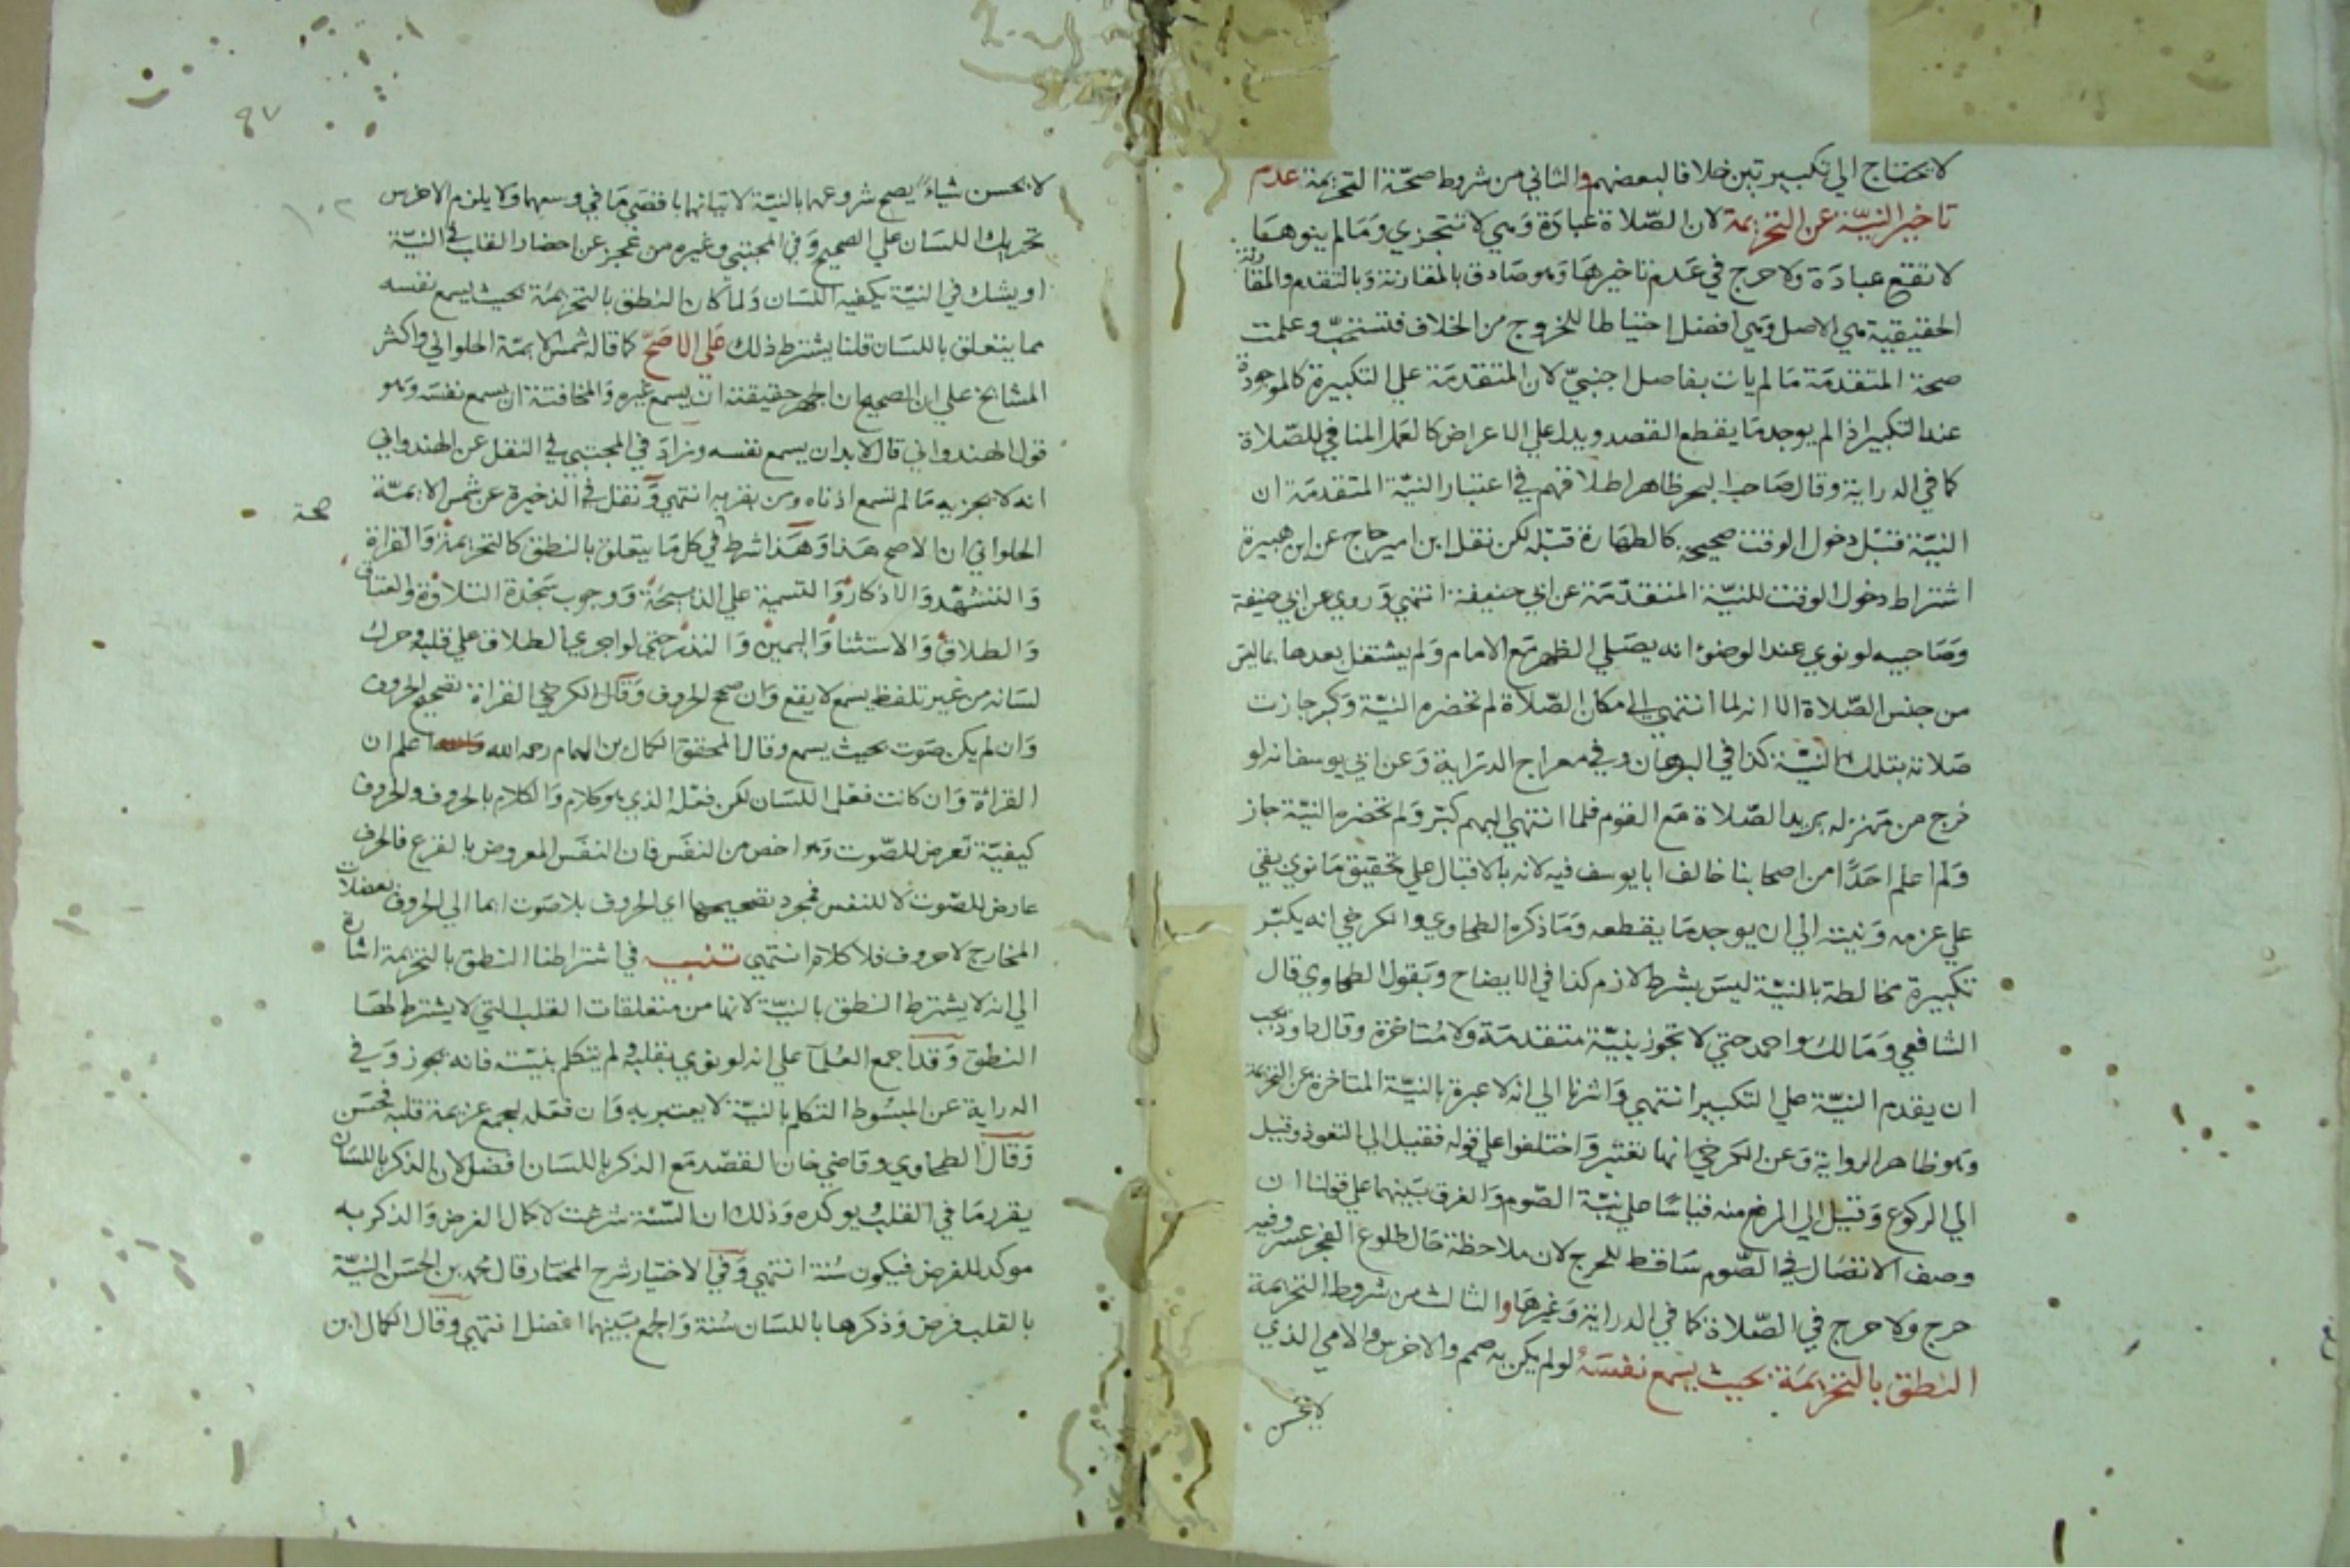 لا يحتاج الي تكبيرتين خلافا لبعضهم والثاني من شروط صحّة التحريمة عدم
تاخير النيّة عن التحريمة لان الصّلاة عبادة وهي لا تتجزي وما لم ينوهما
لا تقع عبادة ولا حرج في عدم تاخيرها وهو صادق بالمقارنة وبالتقدم والمقارنة
الحقيقية هي الاصل وهي افضل احتياطا للخروج من الخلاف فتستحبّ وعلمت
صحة المتقدمة ما لم يات بفاصل اجنبيّ لان المتقدمة علي التكبيرة كالموجودة
عند التكبير اذا لم يوجد ما يقطع القصد ويدل علي الاعراض كالعمل المنافي للصّلاة
كما في الدراية وقال صاحب البحر ظاهر اطلاقهم في اعتبار النيّة المتقدمة ان
النيّة قبل دخول الوقت صحيحة كالطهارة قبله لكن نقل ابن امير حاج عن ابن هبيرة
اشتراط دخول الوقت للنيّة المتقدّمة عن ابي حنيفة انتهي وروي عن ابي حنيفة
وصاحبيه لو نوي عند الوضوء انه يصلي الظهر مع الامام ولم يشتغل بعدها بما ليس
من جنس الصّلاة الا انه لما انتهي الي مكان الصّلاة لم تحضره النيّة وكبر جازت
صلاته بتلك النيّة كذا في البرهان وفي معراج الدراية وعن ابي يوسف انه لو
خرج من منزله يريد الصّلاة مع القوم فلما انتهي اليهم كبّر ولم تحضره النيّة جاز
ولم اعلم احدًا من اصحابنا خالف ابا يوسف فيه لانه بالاقبال علي تحقيق ما نوي بقي
علي عزمه ونيته الي ان يوجد ما يقطعه وما ذكره الطحاوي والكرخي انه يكبّر
تكبيرة مخالطة بالنيّة ليس بشرط لازم كذا في الايضاح وبقول الطحاوي قال
الشافعي ومالك واحمد حتي لا تجوز بنيّة متقدمة ولا متاخرة وقال داود يجب
ان يقدم النيّة علي التكبير انتهي واشرنا الي انه لا عبرة بالنيّة المتاخرة عن التحريمة
وهو ظاهر الرواية وعن الكرخي انها تعتبر واختلفوا علي قوله فقيل الي التعوذ وقيل
الي الركوع وقيل الي الرفع منه قياسًا علي نيّة الصّوم والفرق بينهما علي قولنا ان
وصف الاتصال في الصّوم ساقط للحرج لان ملاحظة حال طلوع الفجر عسر وفيه
حرج ولا حرج في الصّلاة كما في الدراية وغيرها والثالث من شروط التحريمة
النطق بالتحريمة بحيث يسمع نفسه لو لم يكن به صمم والاخرس والامي الذي
لا يحسن
٩٧
١٠٢
لا يحسن شيئا يصح شروعهما بالنيّة لاتيانهما باقصي ما في وسعهما ولا يلزم الاخرس
تحريك اللسان علي الصحيح وفي المجتبي وغيره من عجز عن احضار القلب في النيّة
او يشك في النيّة يكفيه اللسان ولما كان النطق بالتحريمة بحيث يسمع نفسه
مما يتعلق باللسان قلنا يشترط ذلك علي الاصحّ كما قاله شمس الايمّة الحلواني واكثر
المشايخ علي ان الصحيح ان الجهر حقيقته ان يسمع غيره والمخافتة ان يسمع نفسه وهو
قول الهندواني قال لا بد ان يسمع نفسه وزاد في المجتبي في النقل عن الهندواني
انه لا يجزيه ما لم تسمع اذناه ومن بقربه انتهي ونقل في الذخيرة عن شمس الايمّة
صحة
الحلواني ان الاصح هذا وهذا شرط في كل ما يتعلق بالنطق كالتحريمة والقراة
والتشهّد والاذكار والتسمية علي الذبيحة ووجوب سجدة التلاوة والعتاق
والطلاق والاستثنا واليمين والنذر حتي لو اجري الطلاق علي قلبه وحرك
لسانه من غير تلفظ يسمع لا يقع وان صحح الحروف وقال الكرخي القراة تصحيح الحروف
وان لم يكن صوت بحيث يسمع وقال المحقق الكمال بن الهمام رحمه الله اعلم ان
القراة وان كانت فعل اللسان لكن فعله الذي هو كلام والكلام بالحروف والحروف
كيفيّة تعرض للصّوت وهو اخص من النفس فان النفس المعروض بالقرع فالحرف
عارض للصّوت لا للنفس فمجرد تصحيحها اي الحروف بلا صوت ايما الي الحروف بعضلات
المخارج لا حروف فلا كلام انتهي تنبيه في اشتراطنا النطق بالتحريمة اشارة
الي انه لا يشترط النطق بالنيّة لانها من متعلقات القلب التي لا يشترط لها
النطق وقد اجمع العلمآ علي انه لو نوي بقلبه ولم يتكلم بنيّته فانه يجوز وفي
الدراية عن المبسوط التكلم بالنيّة لا يعتبر به وان فعله ليجمع عزيمة قلبه فحسن
وقال الطحاوي وقاضي خان القصد مع الذكر باللسان افضل لان الذكر باللسان
يقرر ما في القلب يوكده وذلك ان السّنة شرعت لاكمال الفرض والذكر به
موكد للفرض فيكون سُنة انتهي وفي الاختيار شرح المختار قال محمد بن الحسن النيّة
بالقلب فرض وذكرها باللسان سُنة والجمع بينهما افضل انتهي وقال الكمال ابن